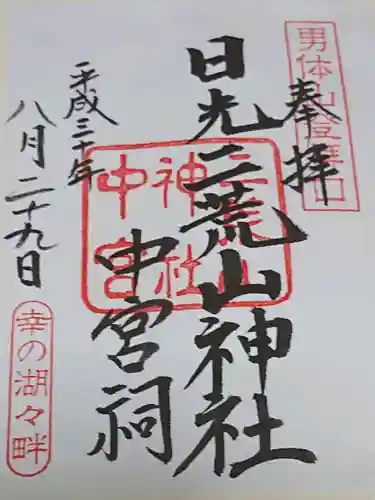 男体山登拝口
奉拝
日光二荒山神社
中宮祠
二荒山
神社
中宮
平成三十年
八月二十九日
幸の湖々畔